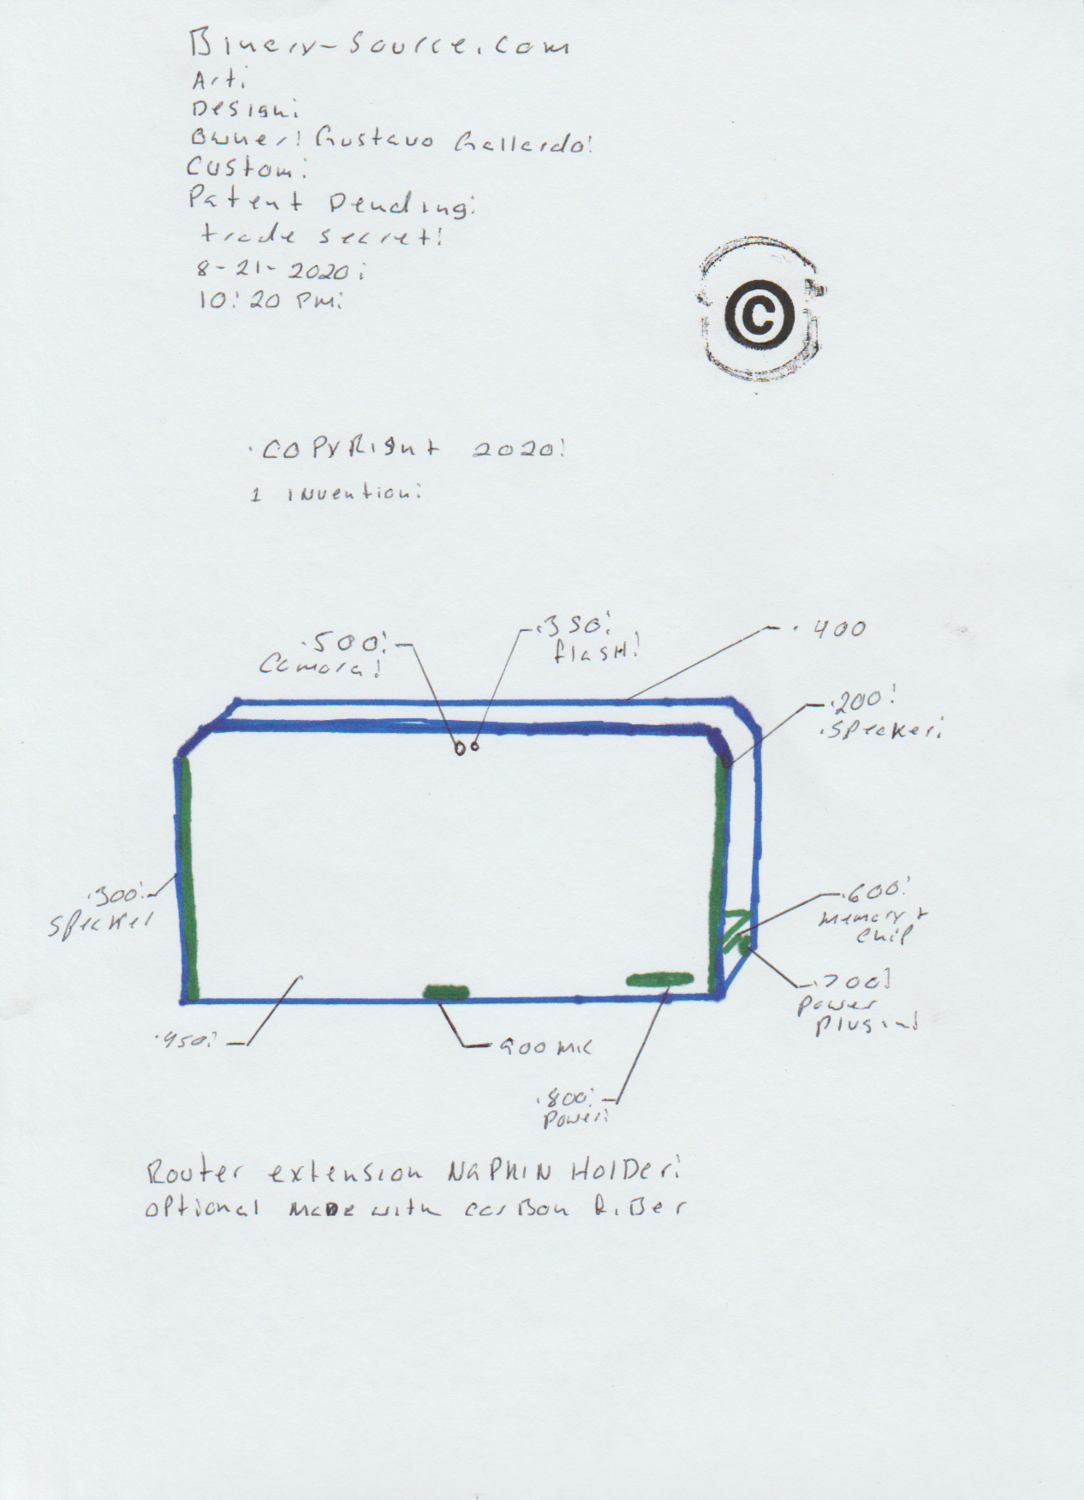 Binary-Source.com
Art:
Design:
Owner: Gustavo Gallardo:
Custom:
Patent Pending:
trade secret:
8-21-2020:
10:20 PM:
©
.COPYRight 2020:
1 Invention:
.500: Camara:
.350: flash:
.400
.200: .speaker:
.300: Speaker
.600: memory + chip
.700: Power Plugin:
.950:
900 MIC
.800: Power:
Router extension NAPKIN HOLDer:
Optional made with carbon fiber